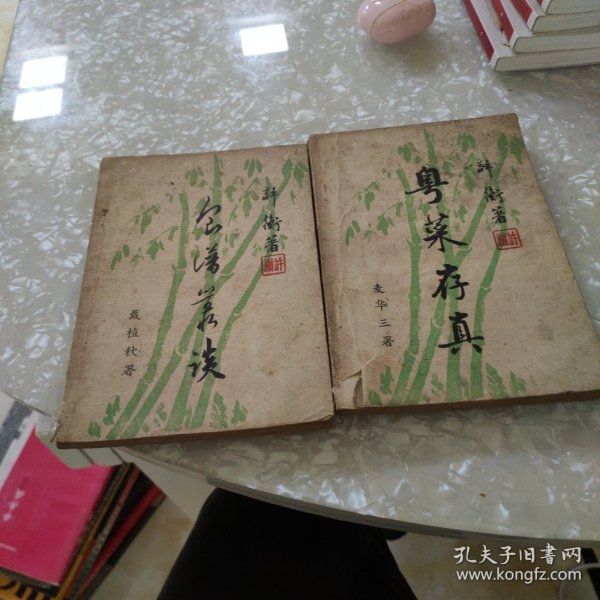 許衡著
食譜叢談
戴植秋署
許衡著
粤菜存真
麦华三署
孔夫子旧书网
www.kongfz.com